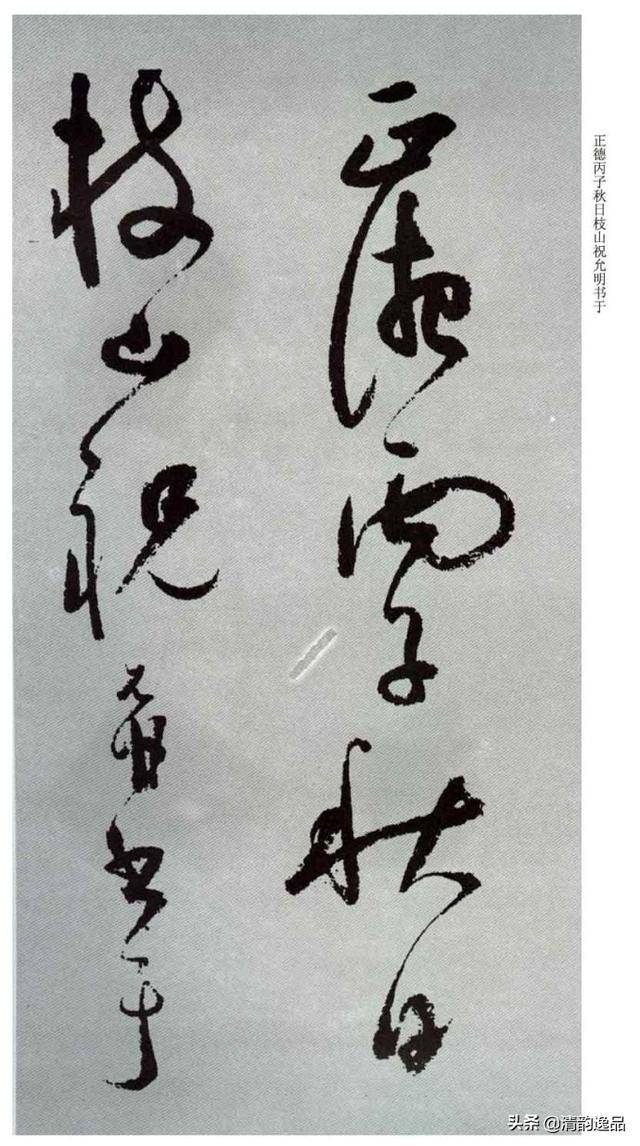 正德丙子秋日枝山祝允明书于
正德丙子秋日
枝山祝允明書于
头条 @清韵逸品